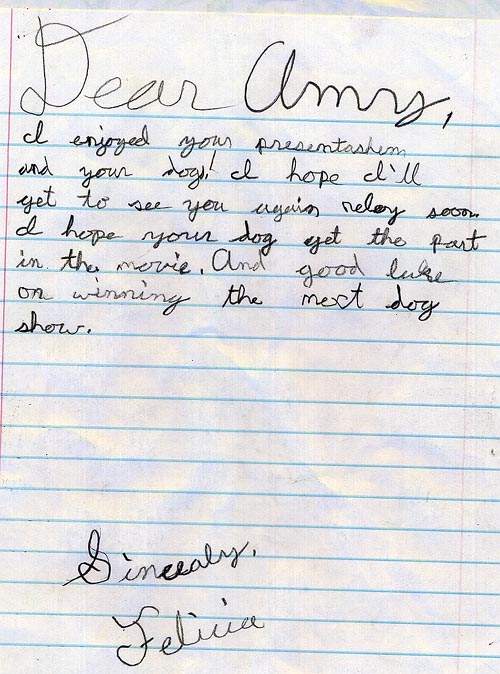 Dear Amy,
I enjoyed your presentashem
and your dog! I hope I'll
get to see you again reley soon.
I hope your dog get the part
in the movie. And good luke
on winning the next dog
show.
Sinceealy,
Felicia